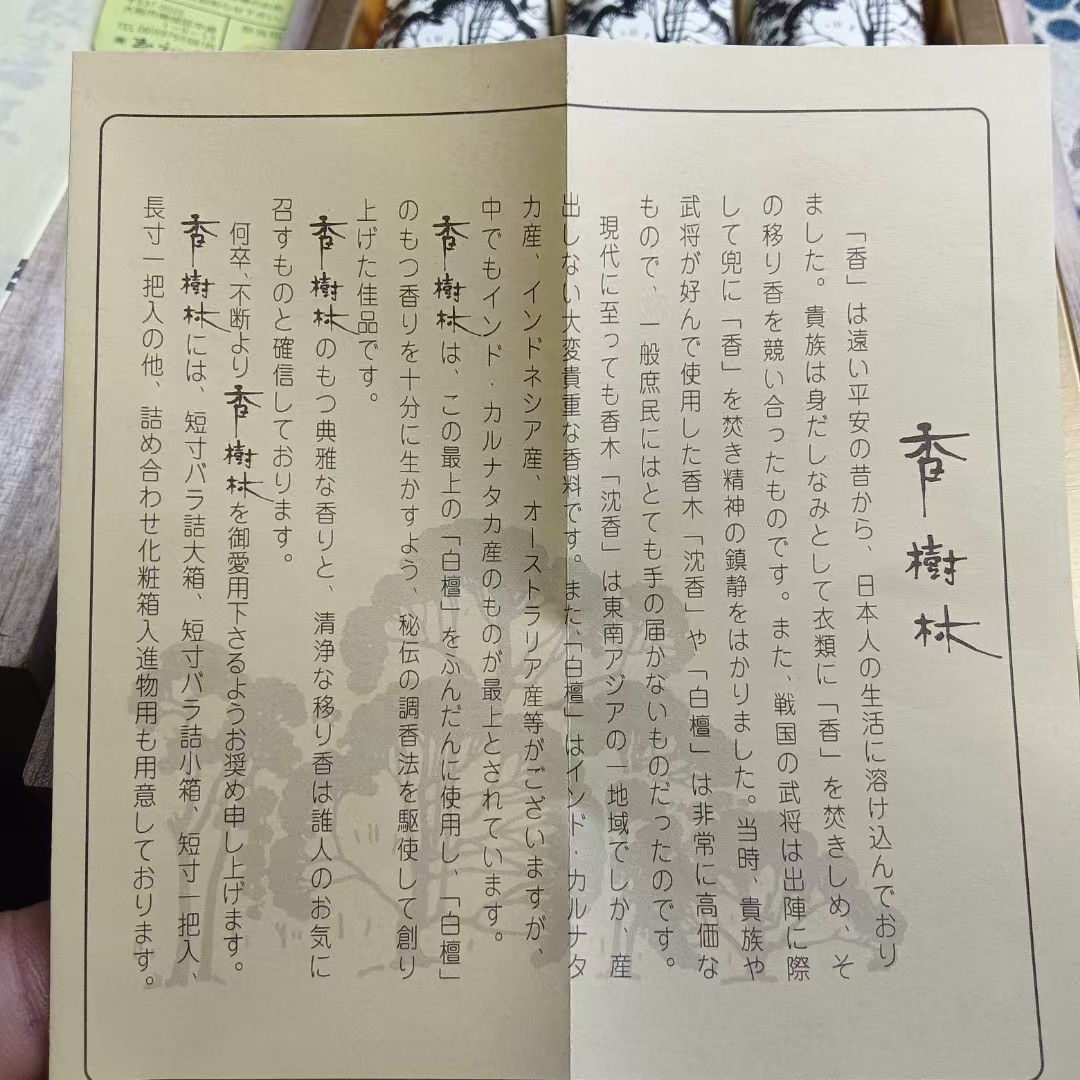 香樹林
「香」は遠い平安の昔から、日本人の生活に溶け込んでおり
ました。貴族は身だしなみとして衣類に「香」を焚きしめ、そ
の移り香を競い合ったものです。また、戦国の武将は出陣に際
して兜に「香」を焚き精神の鎮静をはかりました。当時、貴族や
武将が好んで使用した香木「沈香」や「白檀」は非常に高価な
もので、一般庶民にはとても手の届かないものだったのです。
現代に至っても香木「沈香」は東南アジアの一地域でしか、産
出しない大変貴重な香料です。また、「白檀」はインド・カルナタ
カ産、インドネシア産、オーストラリア産等がございますが、
中でもインド・カルナタカ産のものが最上とされています。
香樹林は、この最上の「白檀」をふんだんに使用し、「白檀」
のもつ香りを十分に生かすよう、秘伝の調香法を駆使して創り
上げた佳品です。
香樹林のもつ典雅な香りと、清浄な移り香は誰人のお気に
召すものと確信しております。
何卒、不断より香樹林を御愛用下さるようお奨め申し上げます。
香樹林には、短寸バラ詰大箱、短寸バラ詰小箱、短寸一把入、
長寸一把入の他、詰め合わせ化粧箱入進物用も用意しております。